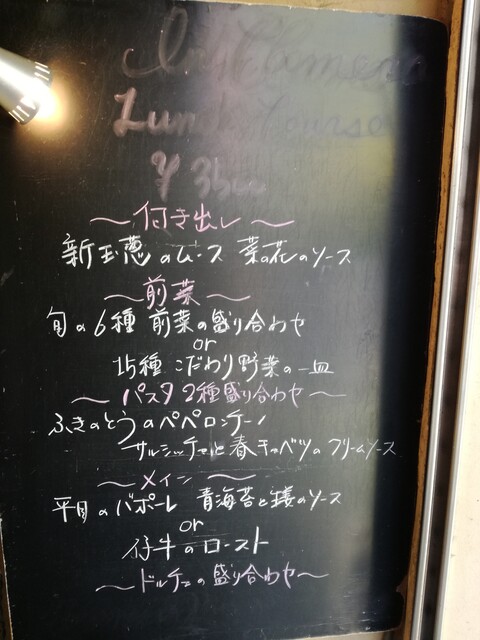 Lunch
¥
〜付き出し〜
新玉葱のムース 菜の花のソース
〜前菜〜
旬の6種 前菜の盛り合わせ
or
15種 こだわり野菜の一皿
〜パスタ2種盛り合わせ〜
ふきのとうのペペロンチーノ
サルシッチャと春キャベツのクリームソース
〜メイン〜
平目のバポーレ 青海苔と のソース
or
仔牛のロースト
〜ドルチェの盛り合わせ〜